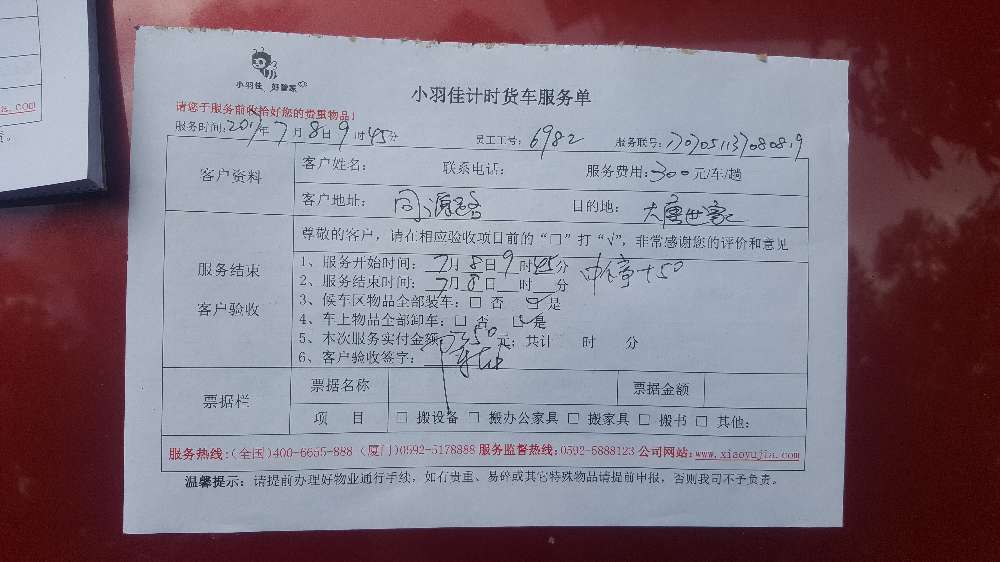 小羽佳 好管家
小羽佳计时货车服务单
请您于服务前收拾好您的贵重物品!
服务时间:2017年7月8日9时45分 员工工号:6982 服务联号:
客户资料
客户姓名: 联系电话: 服务费用:300元/车/趟
客户地址: 同源路 目的地: 大唐世家
尊敬的客户，请在相应验收项目前的“□”打“√”，非常感谢您的评价和意见
服务结束
客户验收
1、服务开始时间:7月8日9时45分 中停+50
2、服务结束时间:7月8日 时 分
3、候车区物品全部装车:□ 否 ☑是
4、车上物品全部卸车:□ 否 ☑是
5、本次服务实付金额:350元；共计 时 分
6、客户验收签字:
票据栏
票据名称 票据金额
项 目 □ 搬设备 □ 搬办公家具 □ 搬家具 □ 搬书 □ 其他:
服务热线:(全国)400-6655-888 (厦门)0592-5178888 服务监督热线:0592-5888123 公司网站:www.xiaoyujia.com
温馨提示: 请提前办理好物业通行手续，如有贵重、易碎或其它特殊物品请提前申报，否则我司不予负责。